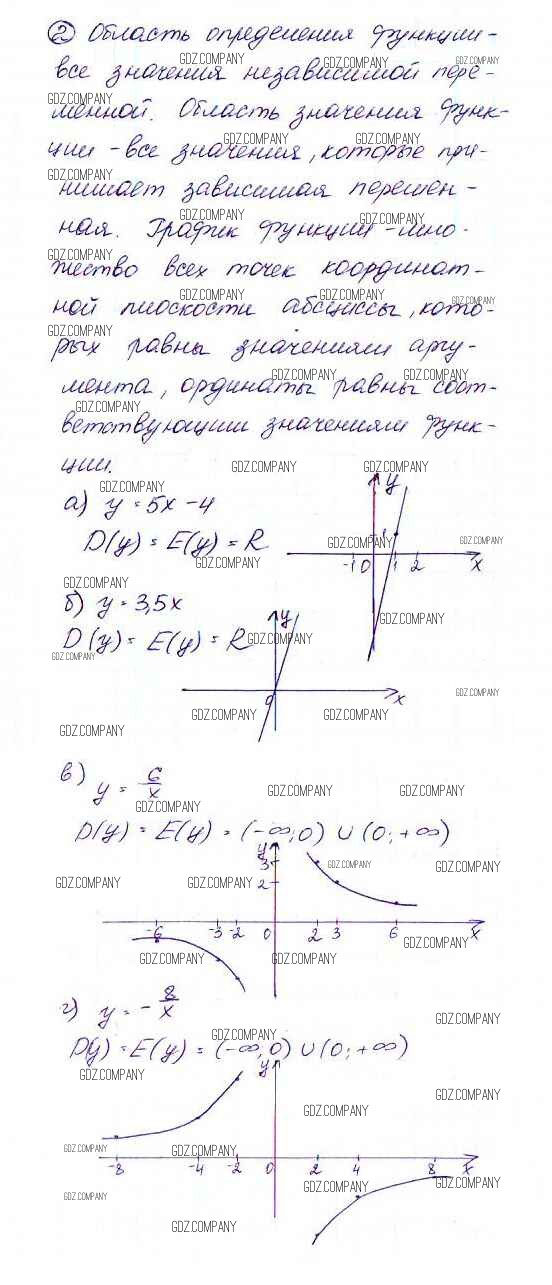 ② Область определения функции -
все значения независимой пере-
менной. Область значения функ-
ции - все значения, которые при-
нимает зависимая перемен-
ная. График функции - мно-
жество всех точек координат-
ной плоскости абсциссы, кото-
рых равны значениям аргу-
мента, ординаты равны соот-
ветствующим значениям функ-
ции.
а) y = 5x - 4
D(y) = E(y) = R
y
1
-1 0 1 2 x
б) y = 3,5x
D(y) = E(y) = R
y
0 x
в) y = 6/x
D(y) = E(y) = (-∞; 0) ∪ (0; +∞)
y
3
2
-6 -3 -2 0 2 3 6 x
г) y = - 8/x
D(y) = E(y) = (-∞; 0) ∪ (0; +∞)
y
-8 -4 -2 0 2 4 8 x
GDZ.COMPANY